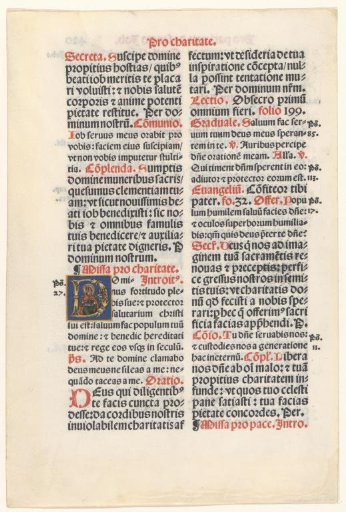 Pro charitate.
Secreta. Suscipe domine
propitius hostias/ quibꝰ
beati iob meritis te placa
ri voluisti: ⁊ nobis salutē
corporis ⁊ anime potenti
pietate restitue. Per do-
minum nostrū. Cōmunio.
Iob seruus meus orabit pro
vobis: faciem eius suscipiam/
vt non vobis imputetur stulti-
tia. Cōplenda. Sumptis
domine muneribus sacris/
quesumus clementiam tu-
am: vt sicut nouissimis be-
ati iob benedixisti: sic no-
bis ⁊ omnibus famulis
tuis benedicere ⁊ auxilia-
ri tua pietate digneris. P
dominum nostrum.
¶ Missa pro charitate.
Domi- Introitꝰ.
nus fortitudo ple-
bis sue: ⁊ protector
salutarium christi
sui est: saluum fac populum tuū
domine: ⁊ benedic hereditati
tue: ⁊ rege eos vsqȝ in seculū.
Ps. Ad te domine clamabo
deus meus ne sileas a me: ne-
quādo taceas a me. Oratio.
DEus qui diligentibꝰ
te facis cuncta pro-
desse: da cordibus nostris
inuiolabilem charitatis af
ps.
27.
fectum: vt desideria de tua
inspiratione cōcepta/ nul-
la possint tentatione mu-
tari. Per dominum nr̄m.
Lectio. Obsecro primū
omnium fieri. folio 199.
Graduale. Saluum fac ser-
uum tuum deus meus speran-
tem in te. V. Auribus percipe
dn̄e orationē meam. Alla. V.
Qui timent dn̄m sperent in eo:
adiutor ⁊ protector eorum est.
Euangeliū. Cōfiteor tibi
pater. fo. 32. Offer. Popu
lum humilem saluū facies dn̄e:
⁊ oculos superborum humilia-
bis: qm̄ quis deus preter te dn̄e?
Secr. Deus q nos ad ima-
ginem tuā sacramētis re-
nouas ⁊ preceptis: perfi-
ce gressus nostros in semi-
tis tuis: vt charitatis do-
nū qd fecisti a nobis spe-
rari: per hec q offerimꝰ sacri
ficia facias apphendi. P.
Cōio. Tu dn̄e seruabis nos:
⁊ custodies nos a generatione
hac in eternū. Cōpl. Libera
nos dn̄e ab oī malo: ⁊ tuā
propitius charitatem in-
funde: vt quos tuo celesti
pane satiasti: tua facias
pietate concordes. Per.
¶ Missa pro pace. Intro.
ps.
85.
ps.
113.
ps.
17.
ps.
11.